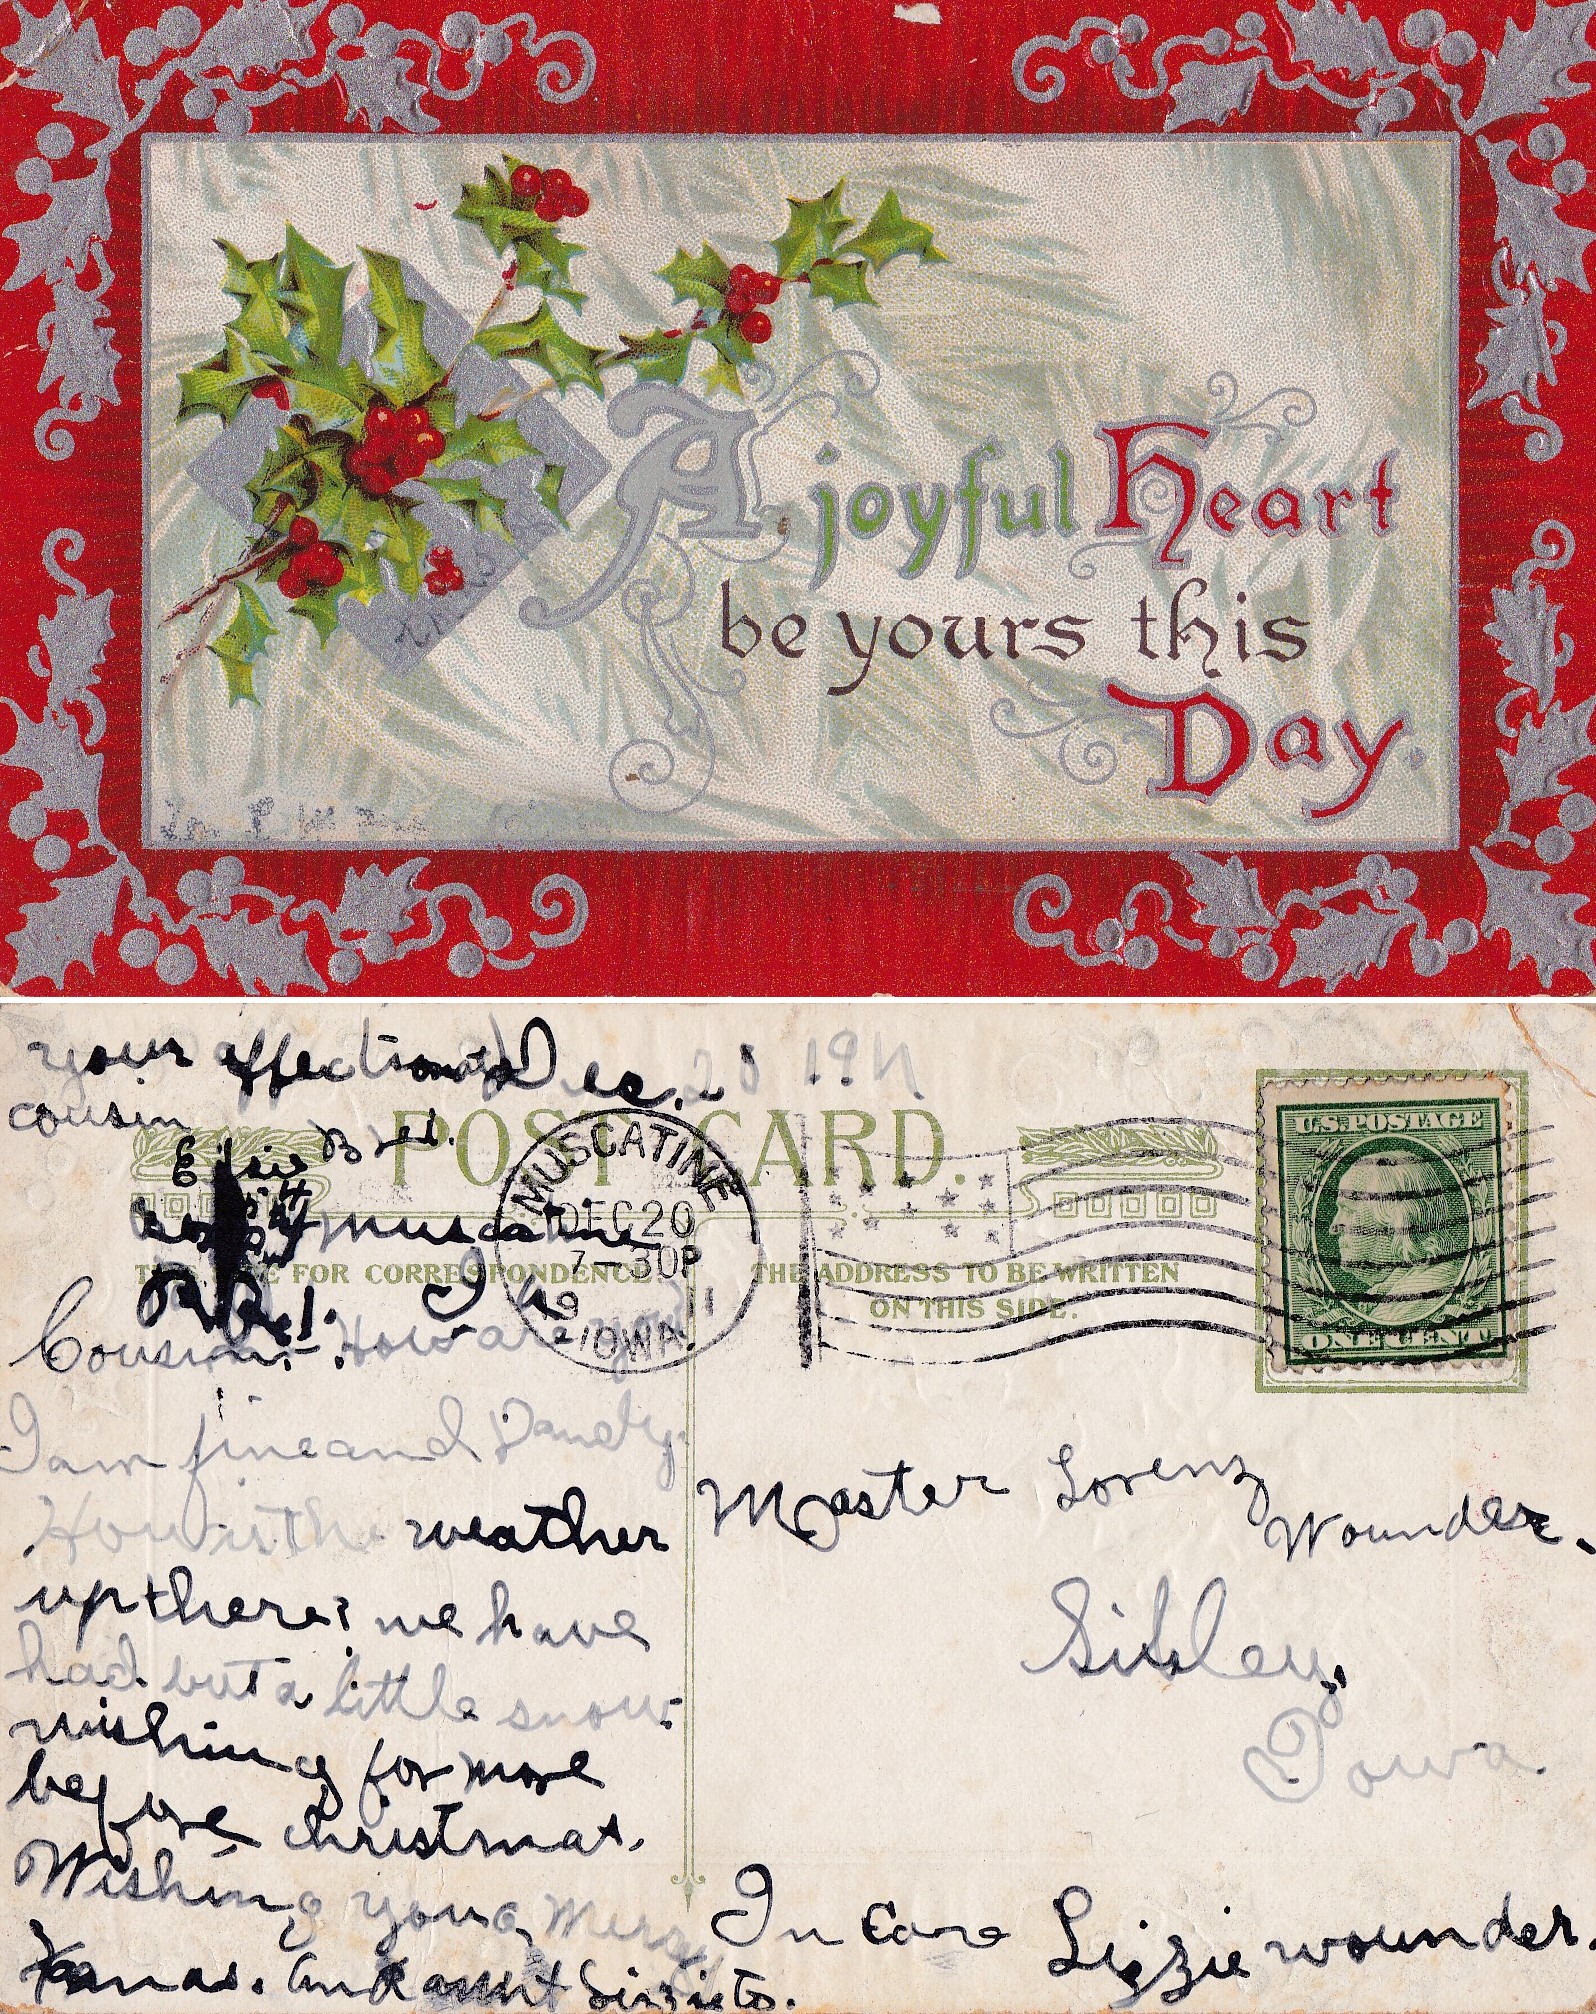 A joyful Heart
be yours this
Day.
your affectionate
cousin
Elsie
Dec. 20 1911.
POST CARD.
MUSCATINE
DEC 20
7-30P
1911
IOWA.
U.S. POSTAGE
ONE CENT
Muscatine
Ia.
FOR CORRESPONDENCE
THE ADDRESS TO BE WRITTEN
ON THIS SIDE.
Cousin:- How are you
I am fine and Dandy.
How is the weather
up there? we have
had but a little snow.
wishing for more
before christmas.
Wishing you a Merry
Xmas. And aunt Lizzie to.
Master Lorenz
Wounder.
Sibley,
Iowa.
In Care Lizzie wounder.